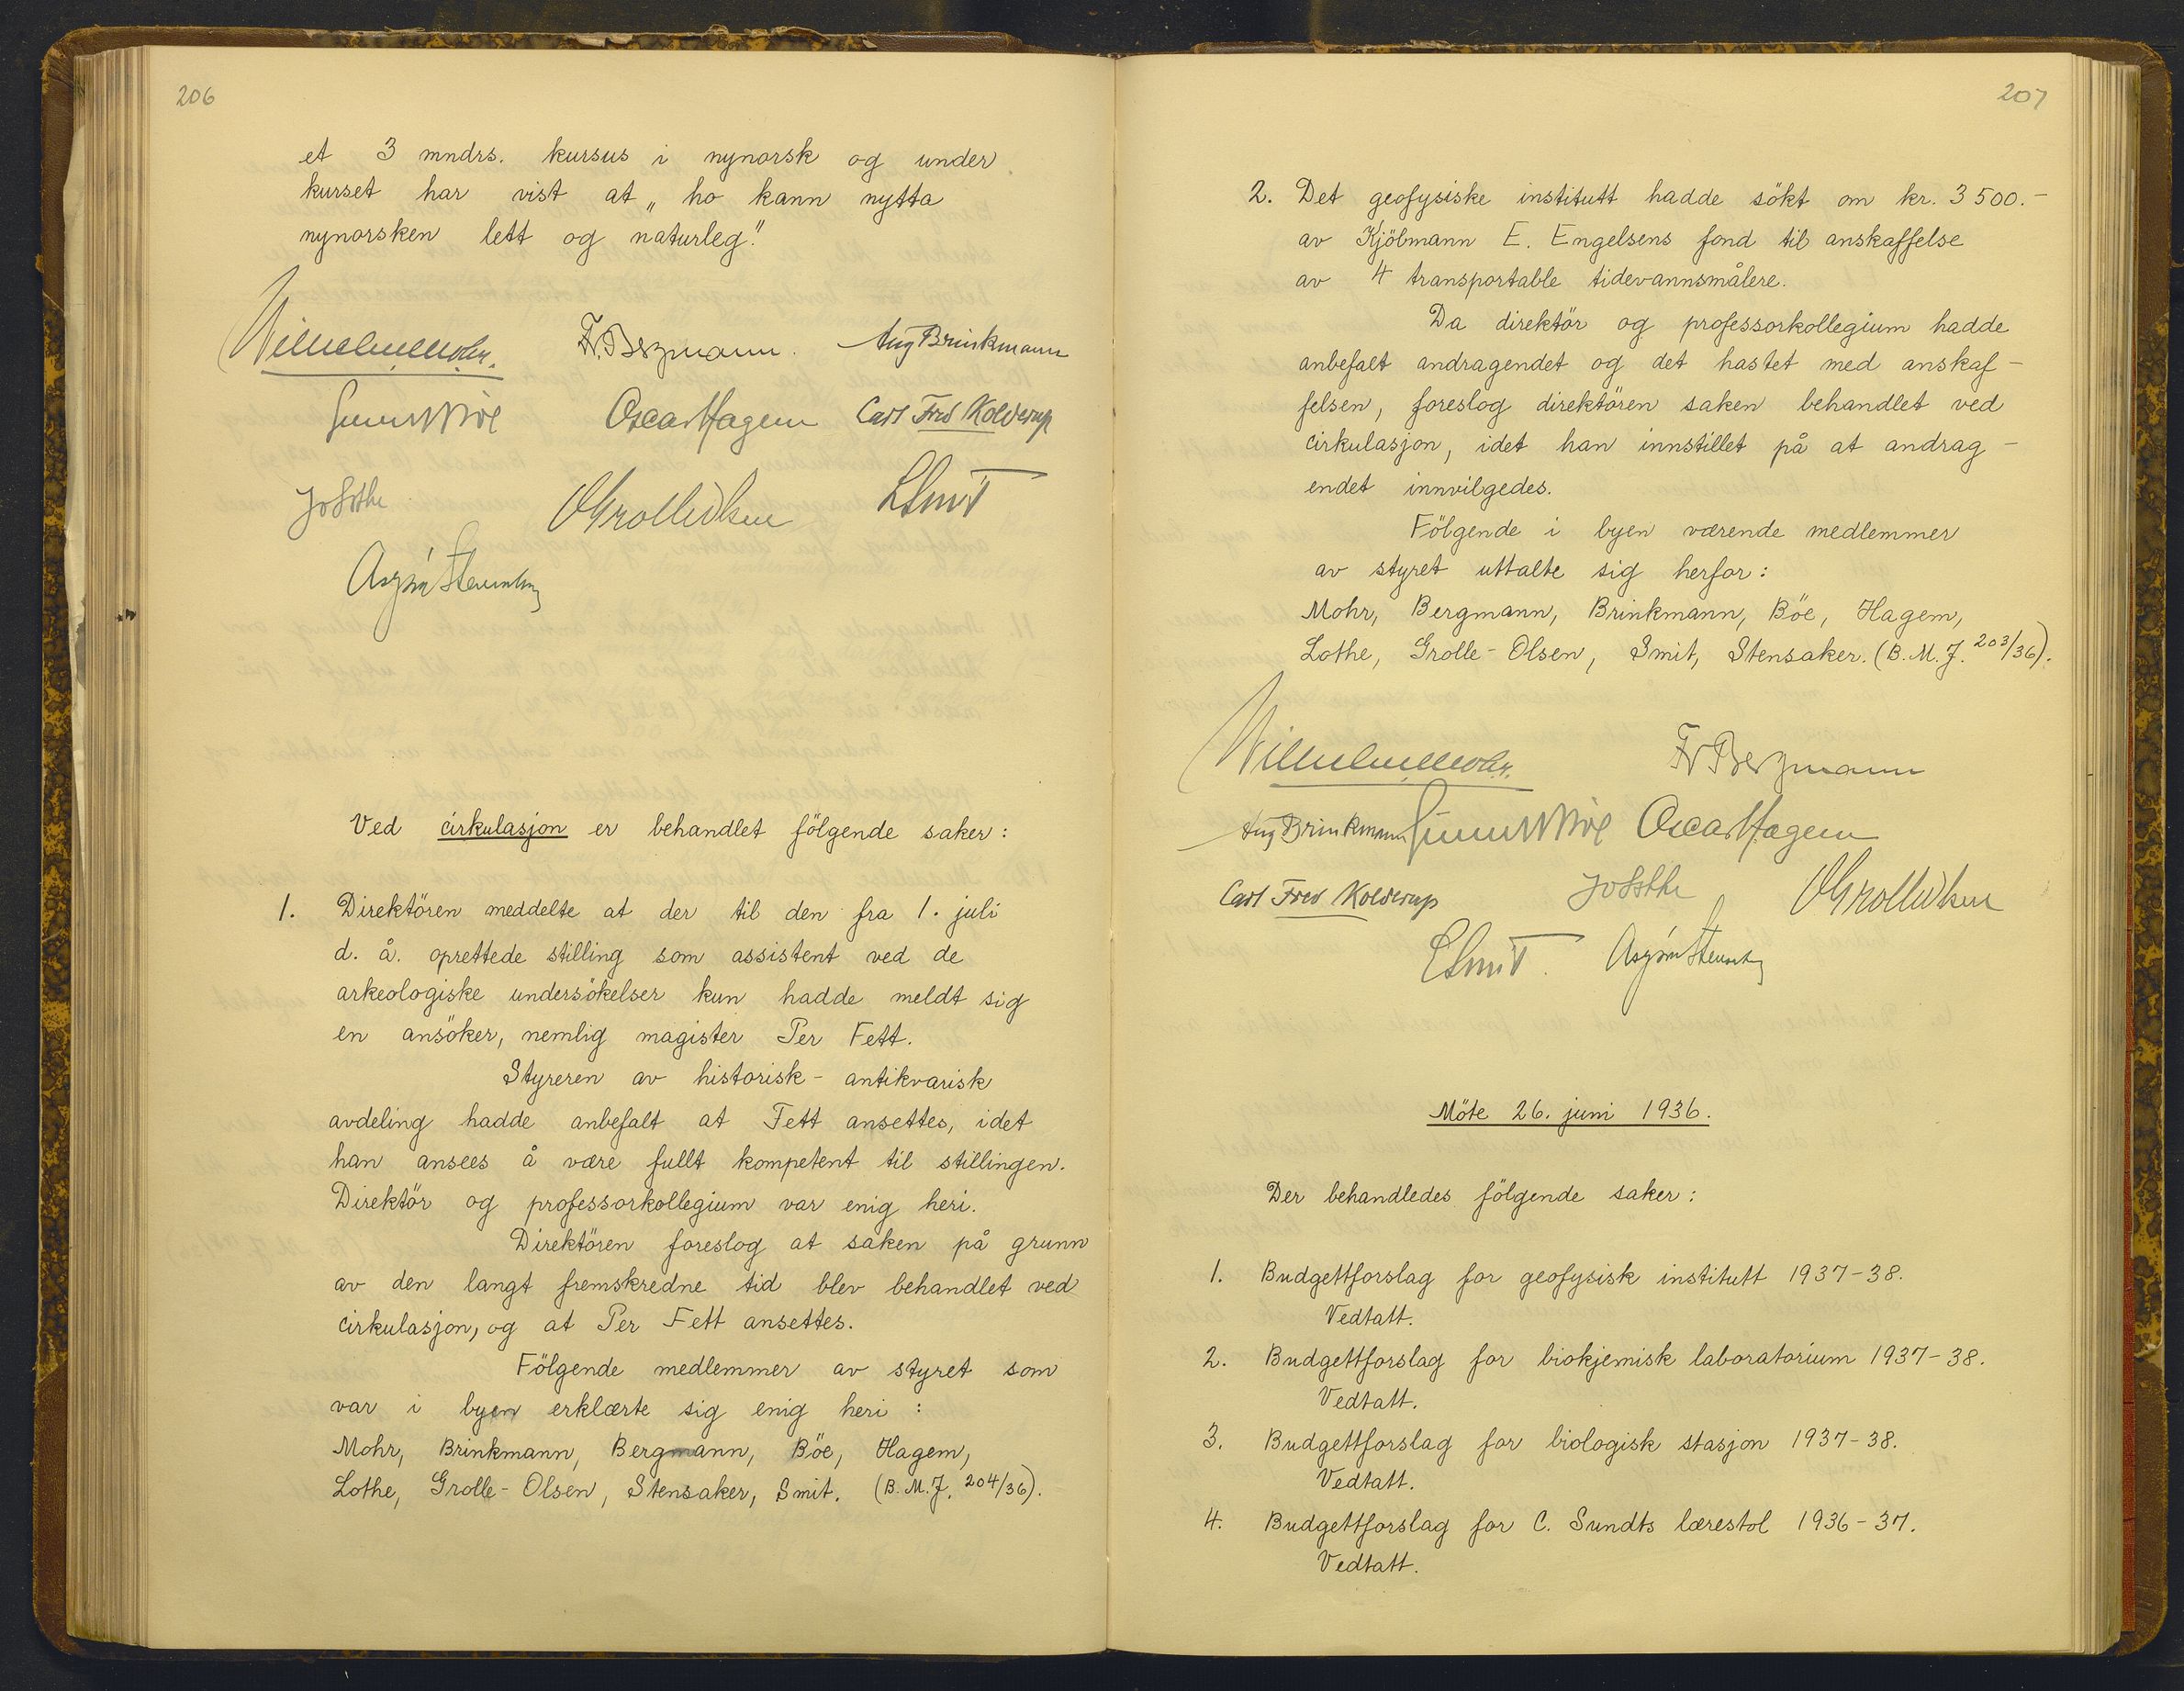 206
et 3 mndrs. kursus i nynorsk og under
kurset har vist at „ho kann nytta
nynorsken lett og naturleg."
Wilhelm Mohr.
Fr. Bergmann.
Aug Brinkmann
Oscar Hagem
Carl Fred Kolderup
Ved cirkulasjon er behandlet fölgende saker:
1. Direktören meddelte at der til den fra 1. juli
d. å. oprettede stilling som assistent ved de
arkeologiske undersökelser kun hadde meldt sig
en ansöker, nemlig magister Per Fett.
Styreren av historisk-antikvarisk
avdeling hadde anbefalt at Fett ansettes, idet
han ansees å være fullt kompetent til stillingen.
Direktör og professorkollegium var enig heri.
Direktören foreslog at saken på grunn
av den langt fremskredne tid blev behandlet ved
cirkulasjon, og at Per Fett ansettes.
Fölgende medlemmer av styret som
var i byen erklærte sig enig heri :
Mohr, Brinkmann, Bergmann, Böe, Hagem,
Lothe, Grolle-Olsen, Stensaker, Smit. (B. M. J. 204/36).
207
2. Det geofysiske institutt hadde sökt om kr. 3500.-
av Kjöbmann E. Engelsens fond til anskaffelse
av 4 transportable tidevannsmålere.
Da direktör og professorkollegium hadde
anbefalt andragendet og det hastet med anskaf-
felsen, foreslog direktören saken behandlet ved
cirkulasjon, idet han innstillet på at andrag-
endet innvilgedes.
Fölgende i byen værende medlemmer
av styret uttalte sig herfor:
Mohr, Bergmann, Brinkmann, Böe, Hagem,
Lothe, Grolle-Olsen, Smit, Stensaker. (B. M. J. 203/36).
Wilhelm Mohr.
Fr Bergmann
Aug Brinkmann
Oscar Hagem
Carl Fred Kolderup
Möte 26. juni 1936.
Der behandledes fölgende saker:
1. Budgettforslag for geofysisk institutt 1937-38.
Vedtatt.
2. Budgettforslag for biokjemisk laboratorium 1937-38.
Vedtatt.
3. Budgettforslag for biologisk stasjon 1937-38.
Vedtatt.
4. Budgettforslag for C. Sundts lærestol 1936-37.
Vedtatt.